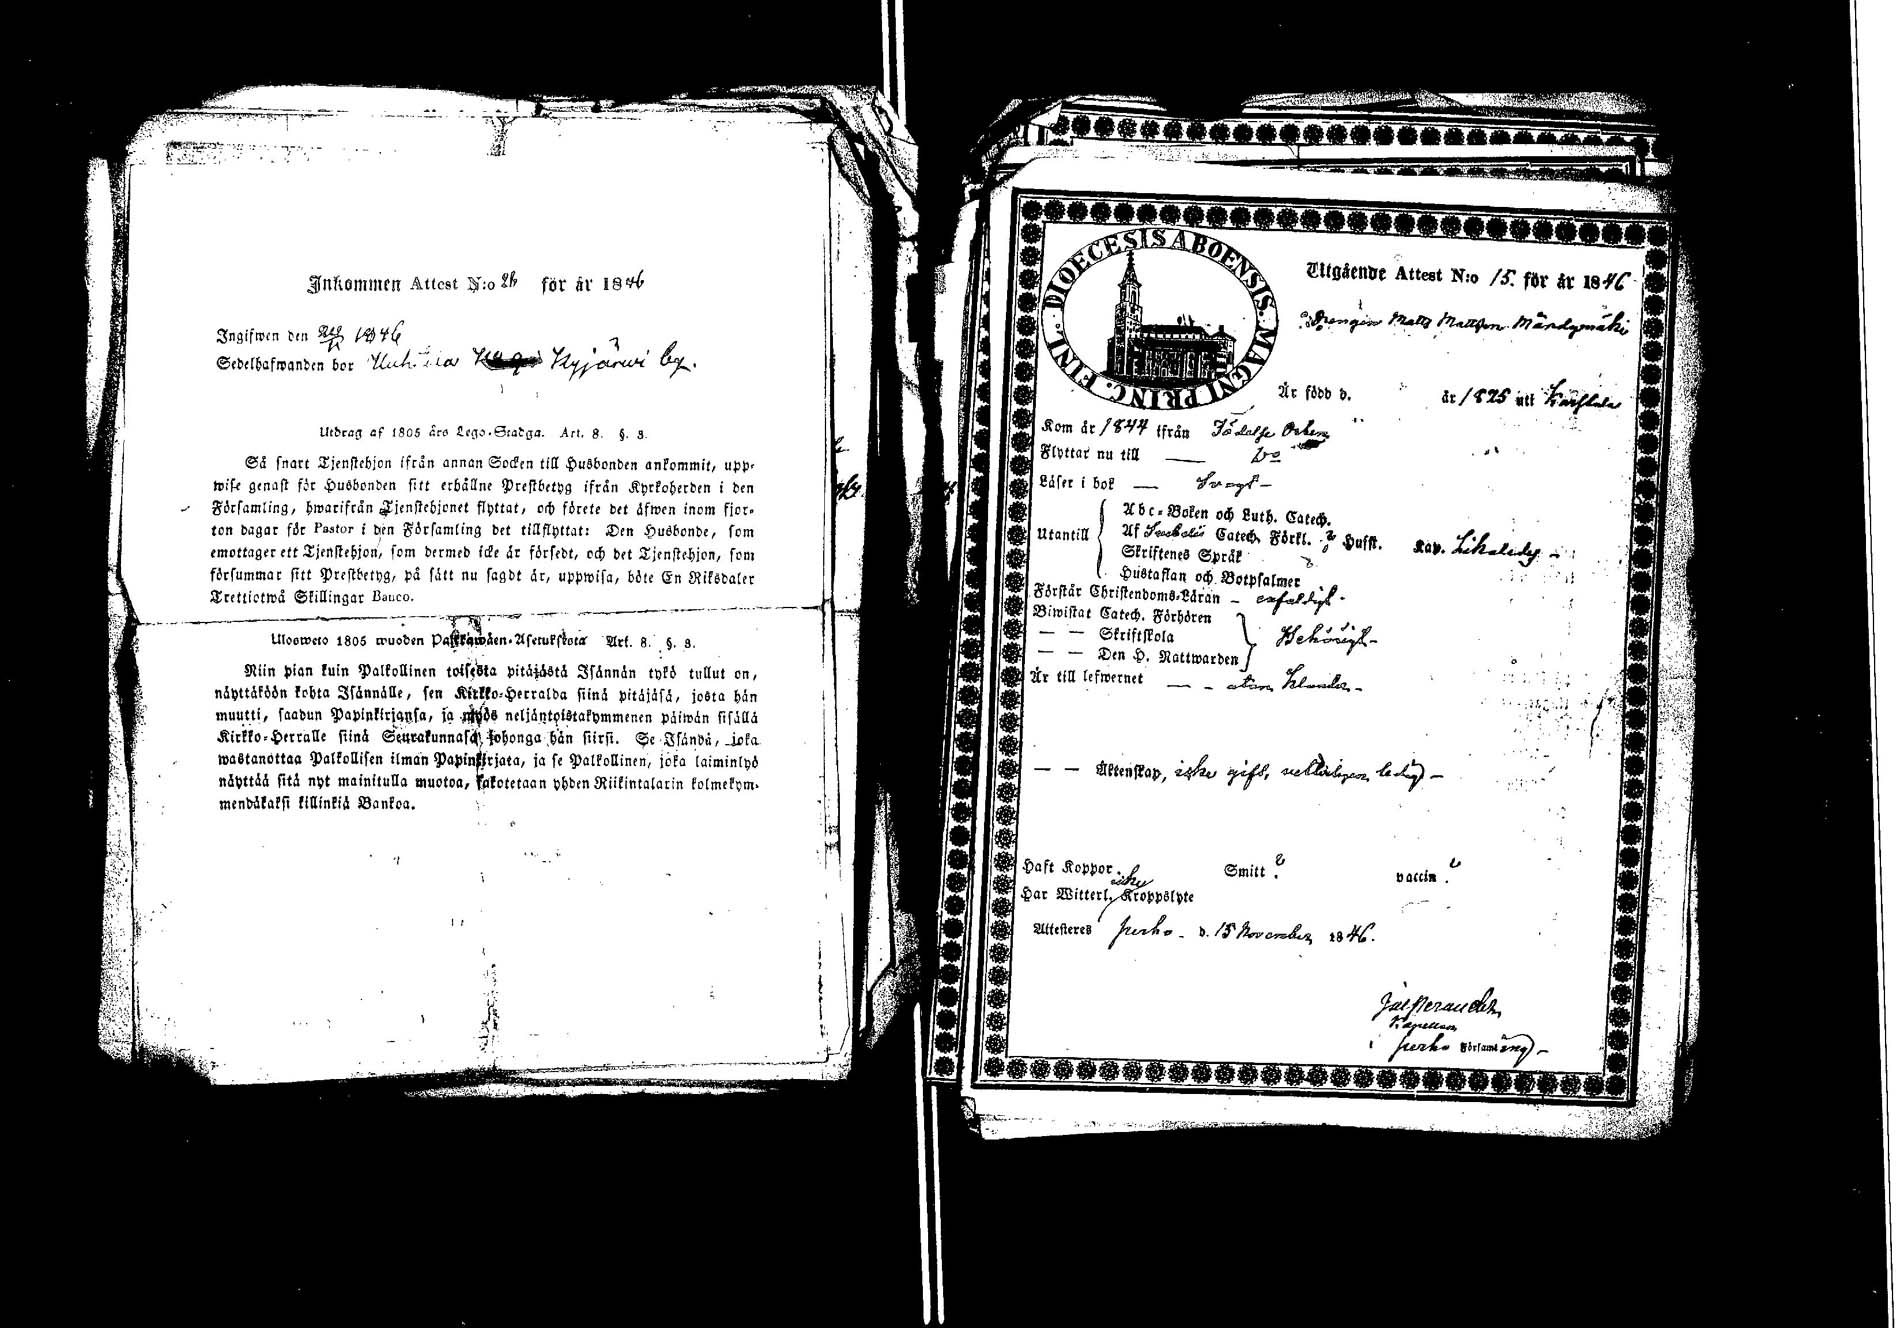 Inkommen Attest N:o 26 för år 1846
Ingifwen den 1846
Sedelhafwanden bor Kyjärwi by.
Utdrag af 1805 års Lego-Stadga. Art. 8. §. 3.
Så snart Tjenstehjon ifrån annan Socken till Husbonden ankommit, upp-
wise genast för Husbonden sitt erhållne Prestbetyg ifrån Kyrkoherden i den
Församling, hwarifrån Tjenstehjonet flyttat, och förete det äfwen inom fjor-
ton dagar för Pastor i den Församling det tillflyttat: Den Husbonde, som
emottager ett Tjenstehjon, som dermed icke är försedt, och det Tjenstehjon, som
försummar sitt Prestbetyg, på sätt nu sagdt är, uppwisa, böte En Riksdaler
Trettiotwå Skillingar Banco.
Ulosweto 1805 wuoden Palkkawäen-Asetuksesta Art. 8. §. 3.
Niin pian kuin Palkollinen toisesta pitäjästä Isännän tykö tullut on,
näyttäköön kohta Isännälle, sen Kirkko-Herralda siinä pitäjäsä, josta hän
muutti, saadun Papinkirjansa, ja myös neljäntoistakymmenen päiwän sisällä
Kirkko-Herralle siinä Seurakunnasa, johonga hän siirsi. Se Isändä, joka
wastanottaa Palkollisen ilman Papinkirjata, ja se Palkollinen, joka laiminlyö
näyttää sitä nyt mainitulla muotoa, sakotetaan yhden Riikintalarin kolmekym-
mendäkaksi killinkiä Bankoa.
DIOECESIS ABOENSIS. MAGNI PRINC. FINL.
Utgående Attest N:o 15. för år 1846
Drengen Matts Mattsson Märsymäki
Är född d. år 1825 uti Karstula
Kom år 1844 ifrån
Flyttar nu till
Läser i bok — Svagt —
Utantill
Abc-Boken och Luth. Catech.
Af Catech. Förkl. ? Hufst. Kap.
Skriftenes Språk
Hustaflan och Botpsalmer
Förstår Christendoms-Läran — enfaldigt.
Biwistat Catech. Förhören
— — Skriftskola
— — Den H. Nattwarden
Behörigt —
Är till lefwernet — — utan klander —
— — Äktenskap, icke gift, ledig —
Haft Koppor. Smitt ? vaccin ?
Har Witterl. icke Kroppslyte
Attesteras Perho d. 15 November 1846.
Kapellan
i Perho Församling —